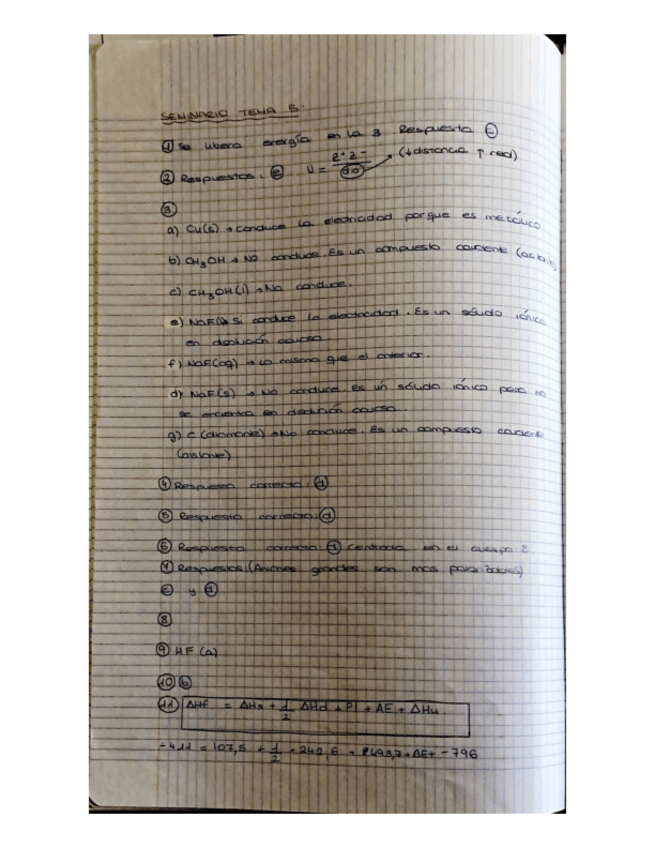 SEMINARIO TEMA 5.
① Se libera energía en la 3 Respuesta ⓒ
② Respuestas: ⓔ U = z⁺z⁻/do (↓distancia ↑red)
③
a) Cu(s) → conduce la electricidad porque es metálico
b) CH₃OH → No conduce. Es un compuesto covalente (aislante)
c) CH₃OH(l) → No conduce.
e) NaF(l) Si conduce la electricidad. Es un sólido iónico
en disolución acuosa.
f) NaF(aq) → Lo mismo que el anterior.
d) NaF(s) → No conduce. Es un sólido iónico pero no
se encuentra en disolución acuosa.
g) C (diamante) → No conduce. Es un compuesto covalente
(aislante)
④ Respuesta correcta: ⓓ
⑤ Respuesta correcta: ⓓ
⑥ Respuesta correcta: ⓓ Centrada en el cuerpo 2
⑦ Respuestas: (Aniones grandes son mas polarizables)
ⓒ y ⓓ
⑧
⑨ HF (a)
⑩ ⓑ
⑪ ΔHf = ΔHs + 1/2 ΔHd + PI + AE + ΔHu
-411 = 107,5 + 1/2 · 242,6 + 493,7 + AE + -796